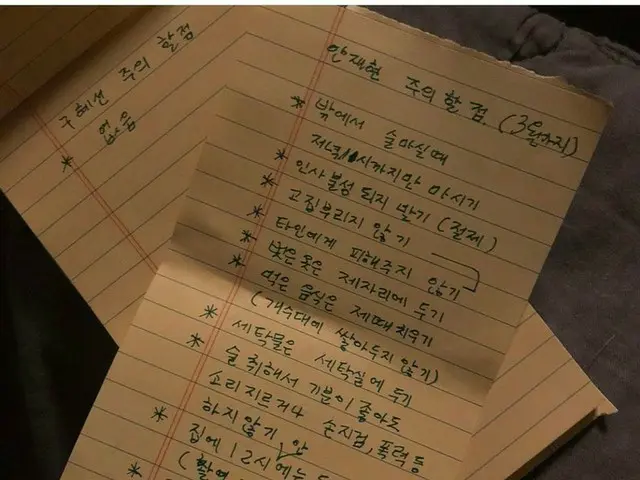 구혜선 주의 할점
* 없음
안재현 주의 할 점. (3월까지)
* 밖에서 술마실때
저녁11시까지만 마시기
* 인사불성 되지 말기 (절제)
* 고집부리지 않기
* 타인에게 피해주지 않기
* 벗은옷은 제자리에 두기
* 먹은 음식은 제때 치우기
(개수대에 쌓아두지 않기)
* 세탁물은 세탁실에 두기
* 술 취해서 기분이 좋아도
소리지르거나 손지검, 폭력 등
하지않기
* 집에 12시에는
* (촬영